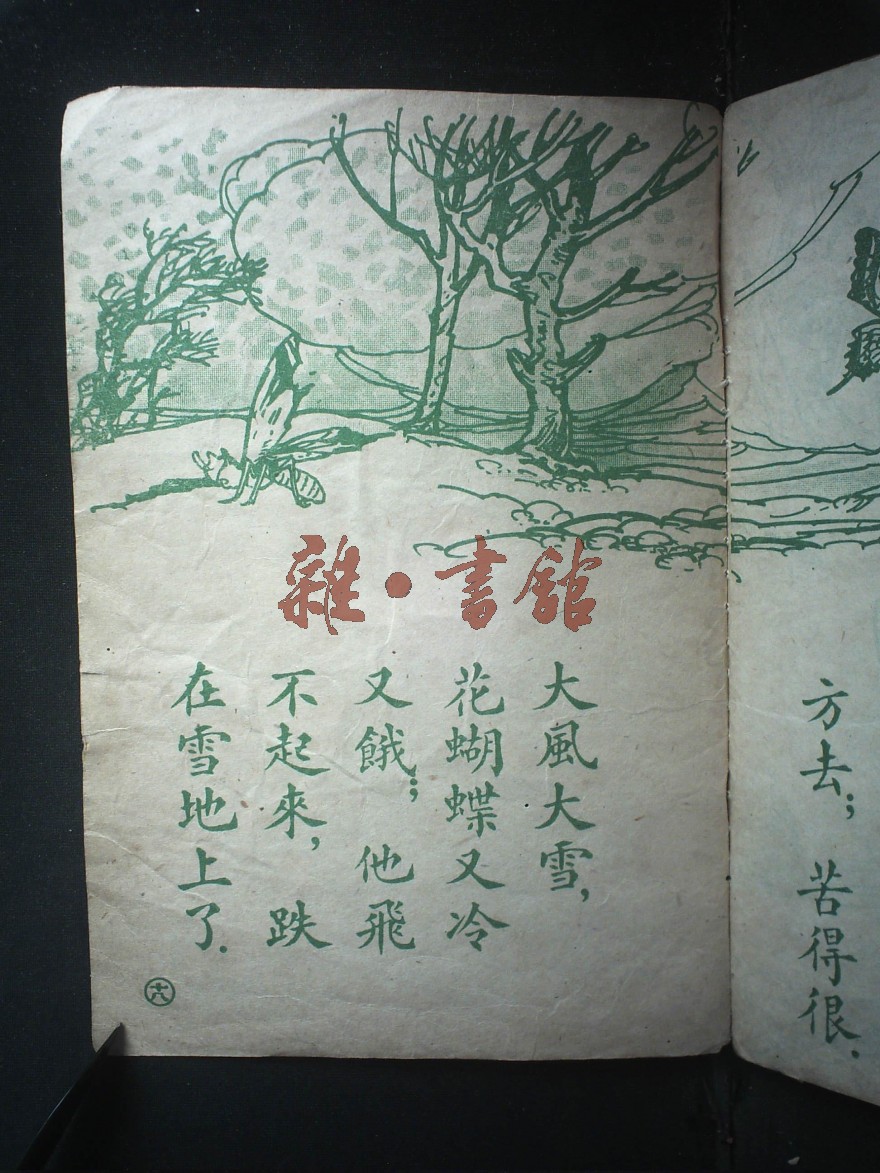 方去；苦得很．
大風大雪，
花蝴蝶又冷
又餓；他飛
不起來，跌
在雪地上了．
十八
雜·書館